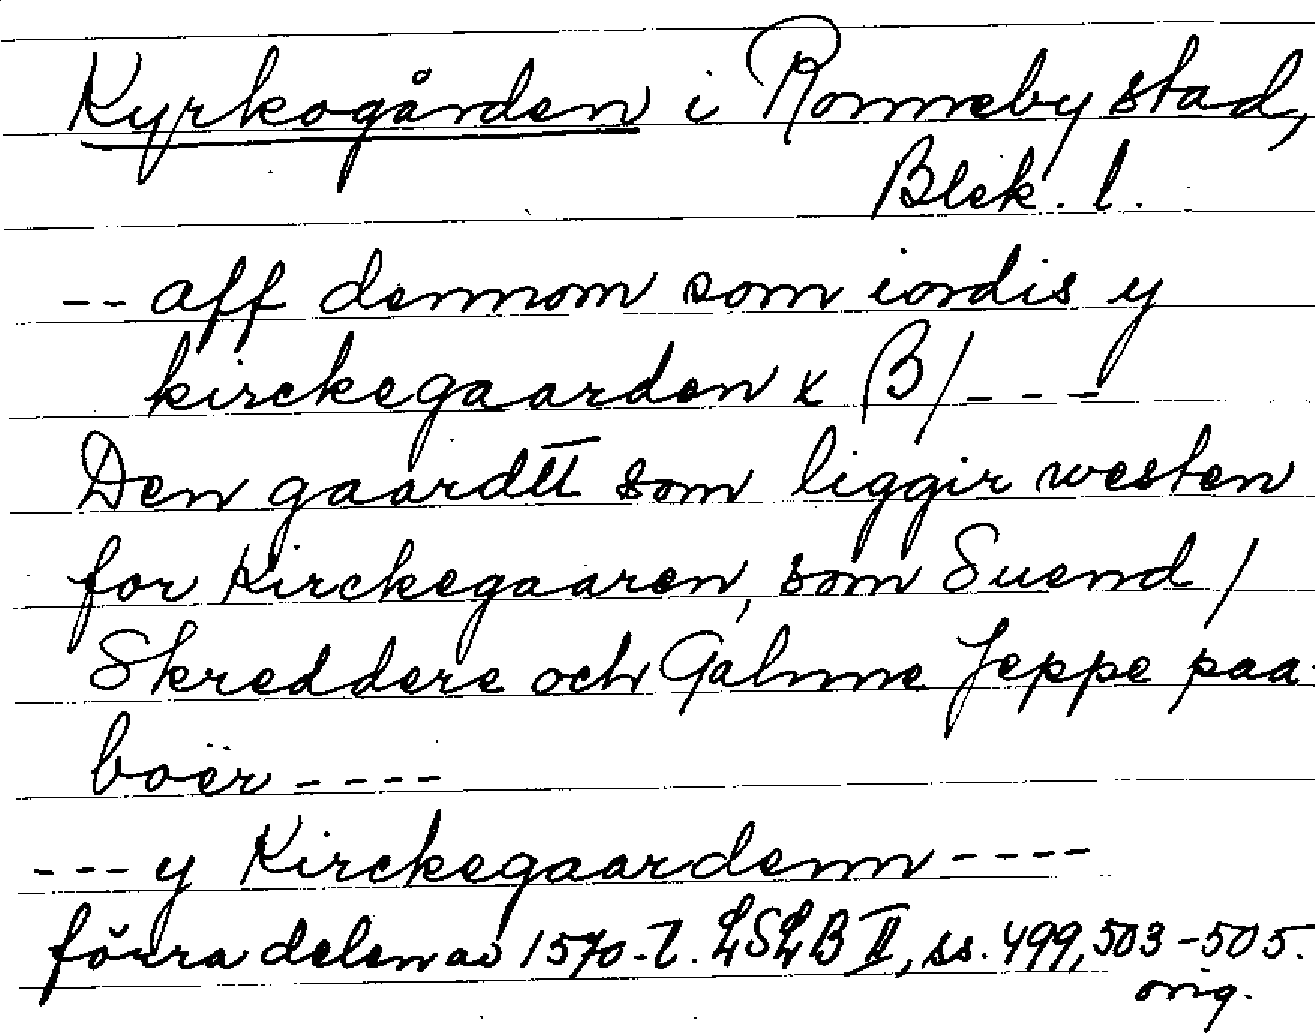 Kyrkogården i Ronneby stad,
Blek. l.
-- aff dennom som iordis y
kirckegaarden x ß/ ---
Den gaardt som liggir westen
for Kirckegaaren, som Suend /
Skreddere och Galnne Jeppe paa
boër ----
--- y Kirckegaardenn ----
förra delen av 1570-t. LSLB II, ss. 499, 503-505.
orig.